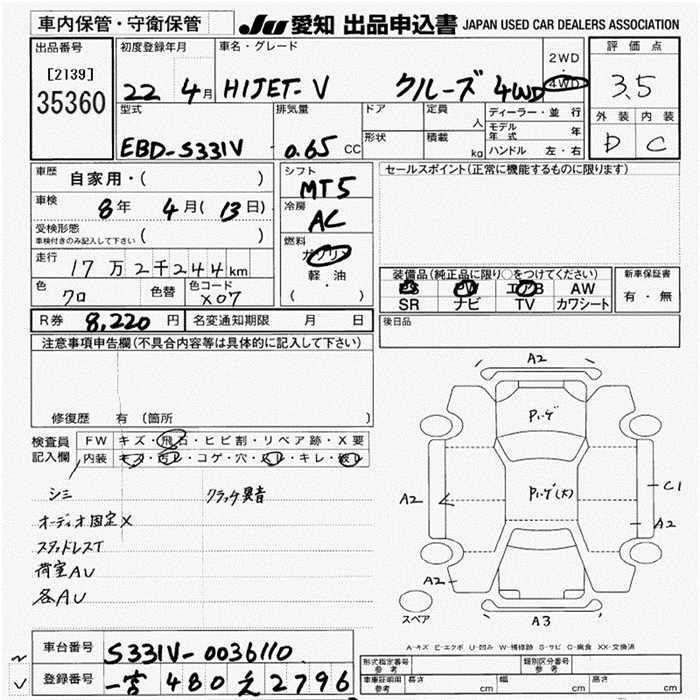 車内保管・守衛保管
JU 愛知 出品申込書 JAPAN USED CAR DEALERS ASSOCIATION
出品番号
[2139]
35360
初度登録年月
22 4月
車名・グレード
HIJET-V クルーズ 4WD
2WD
4WD
評価点
3.5
外装 内装
D C
型式
EBD-S331V
排気量
0.65 CC
ドア
形状
定員 人
積載 kg
ディーラー・並行
モデル年式 年
ハンドル 左・右
車歴 自家用・( )
車検 8年 4月(13日)
受検形態
車検付きのみ記入して下さい ( )
走行 17万2千244km
色 クロ
色替
色コード X07
シフト
MT5
冷房
AC
燃料
ガソリン
軽・油
( ・ )
セールスポイント(正常に機能するものに限ります)
装備品(純正品に限り○をつけてください)
PS PW エアB AW
SR ナビ TV カワシート
新車保証書
有・無
R券 8,220円 名変通知期限 月 日
後日品
注意事項申告欄(不具合内容等は具体的に記入して下さい)
修復歴 有 (箇所
検査員
記入欄
FW キズ・飛石・ヒビ割・リペア跡・X要
内装 キズ・汚レ・コゲ・穴・スレ・キレ・破レ
シミ クラッチ異音
オーディオ固定X
スタッドレスT
荷室AU
各AU
A2
Pハゲ
Pハゲ(大)
A2
C1
A2
A2
A3
スペア
A-キズ E-エクボ U-凹み W-補修跡 S-サビ C-腐食 XX-交換済
車台番号 S331V-0036110
登録番号 一宮 480 え 2796
形式指定番号
参考
類別区分番号
参考
車庫証明用
参考
長さ cm 幅 cm 高さ cm